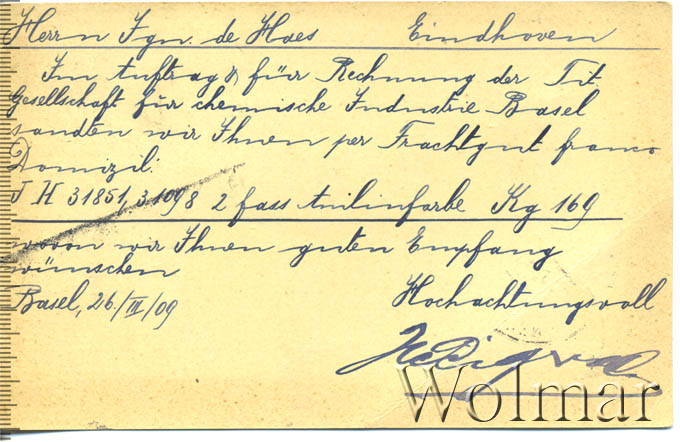 Herrn Ign. de Haes Eindhoven
Im Auftrag & für Rechnung der Tit.
Gesellschaft für chemische Industrie Basel
sandten wir Ihnen per Frachtgut franco
Domizil:
J H 31851, 31098 2 fass Anilinfarbe Kg 169
wovon wir Ihnen guten Empfang
wünschen
Basel, 26./III/09 Hochachtungsvoll
Wolmar